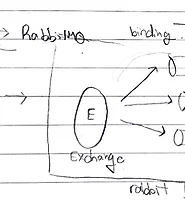 RabbitMQ binding
E
Exchange
rabbit